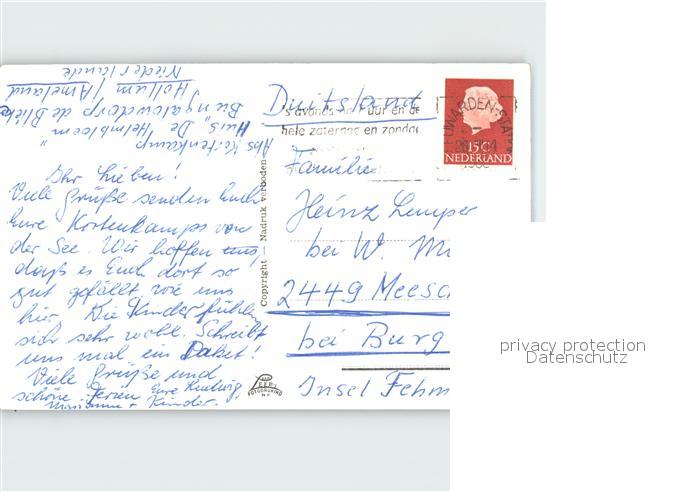 Abs. Kortenkamp
Huis „De Helmbloem"
Bungalowdorp de Blieke
Hollum / Ameland
Niederlande
Ihr Lieben!
Viele Grüße senden Euch
Eure Kortenkamps von
der See. Wir hoffen uns,
daß es Euch dort so
gut gefällt wie uns
hier. Die Kinder fühlen
sich sehr wohl. Schreibt
uns mal ein Paket!
Viele Grüße und
schöne Ferien Eure Hedwig,
+ Kinder.
Copyright — Nadruk verboden
FOTODRUKIND
Duitsland
's avonds uur en de
hele zaterdag en zondag
UWARDEN-STA
15C
NEDERLAND
Familie
Heinz Lemper
bei W. M
2449 Meesc
bei Burg
Insel Fehm
privacy protection
Datenschutz